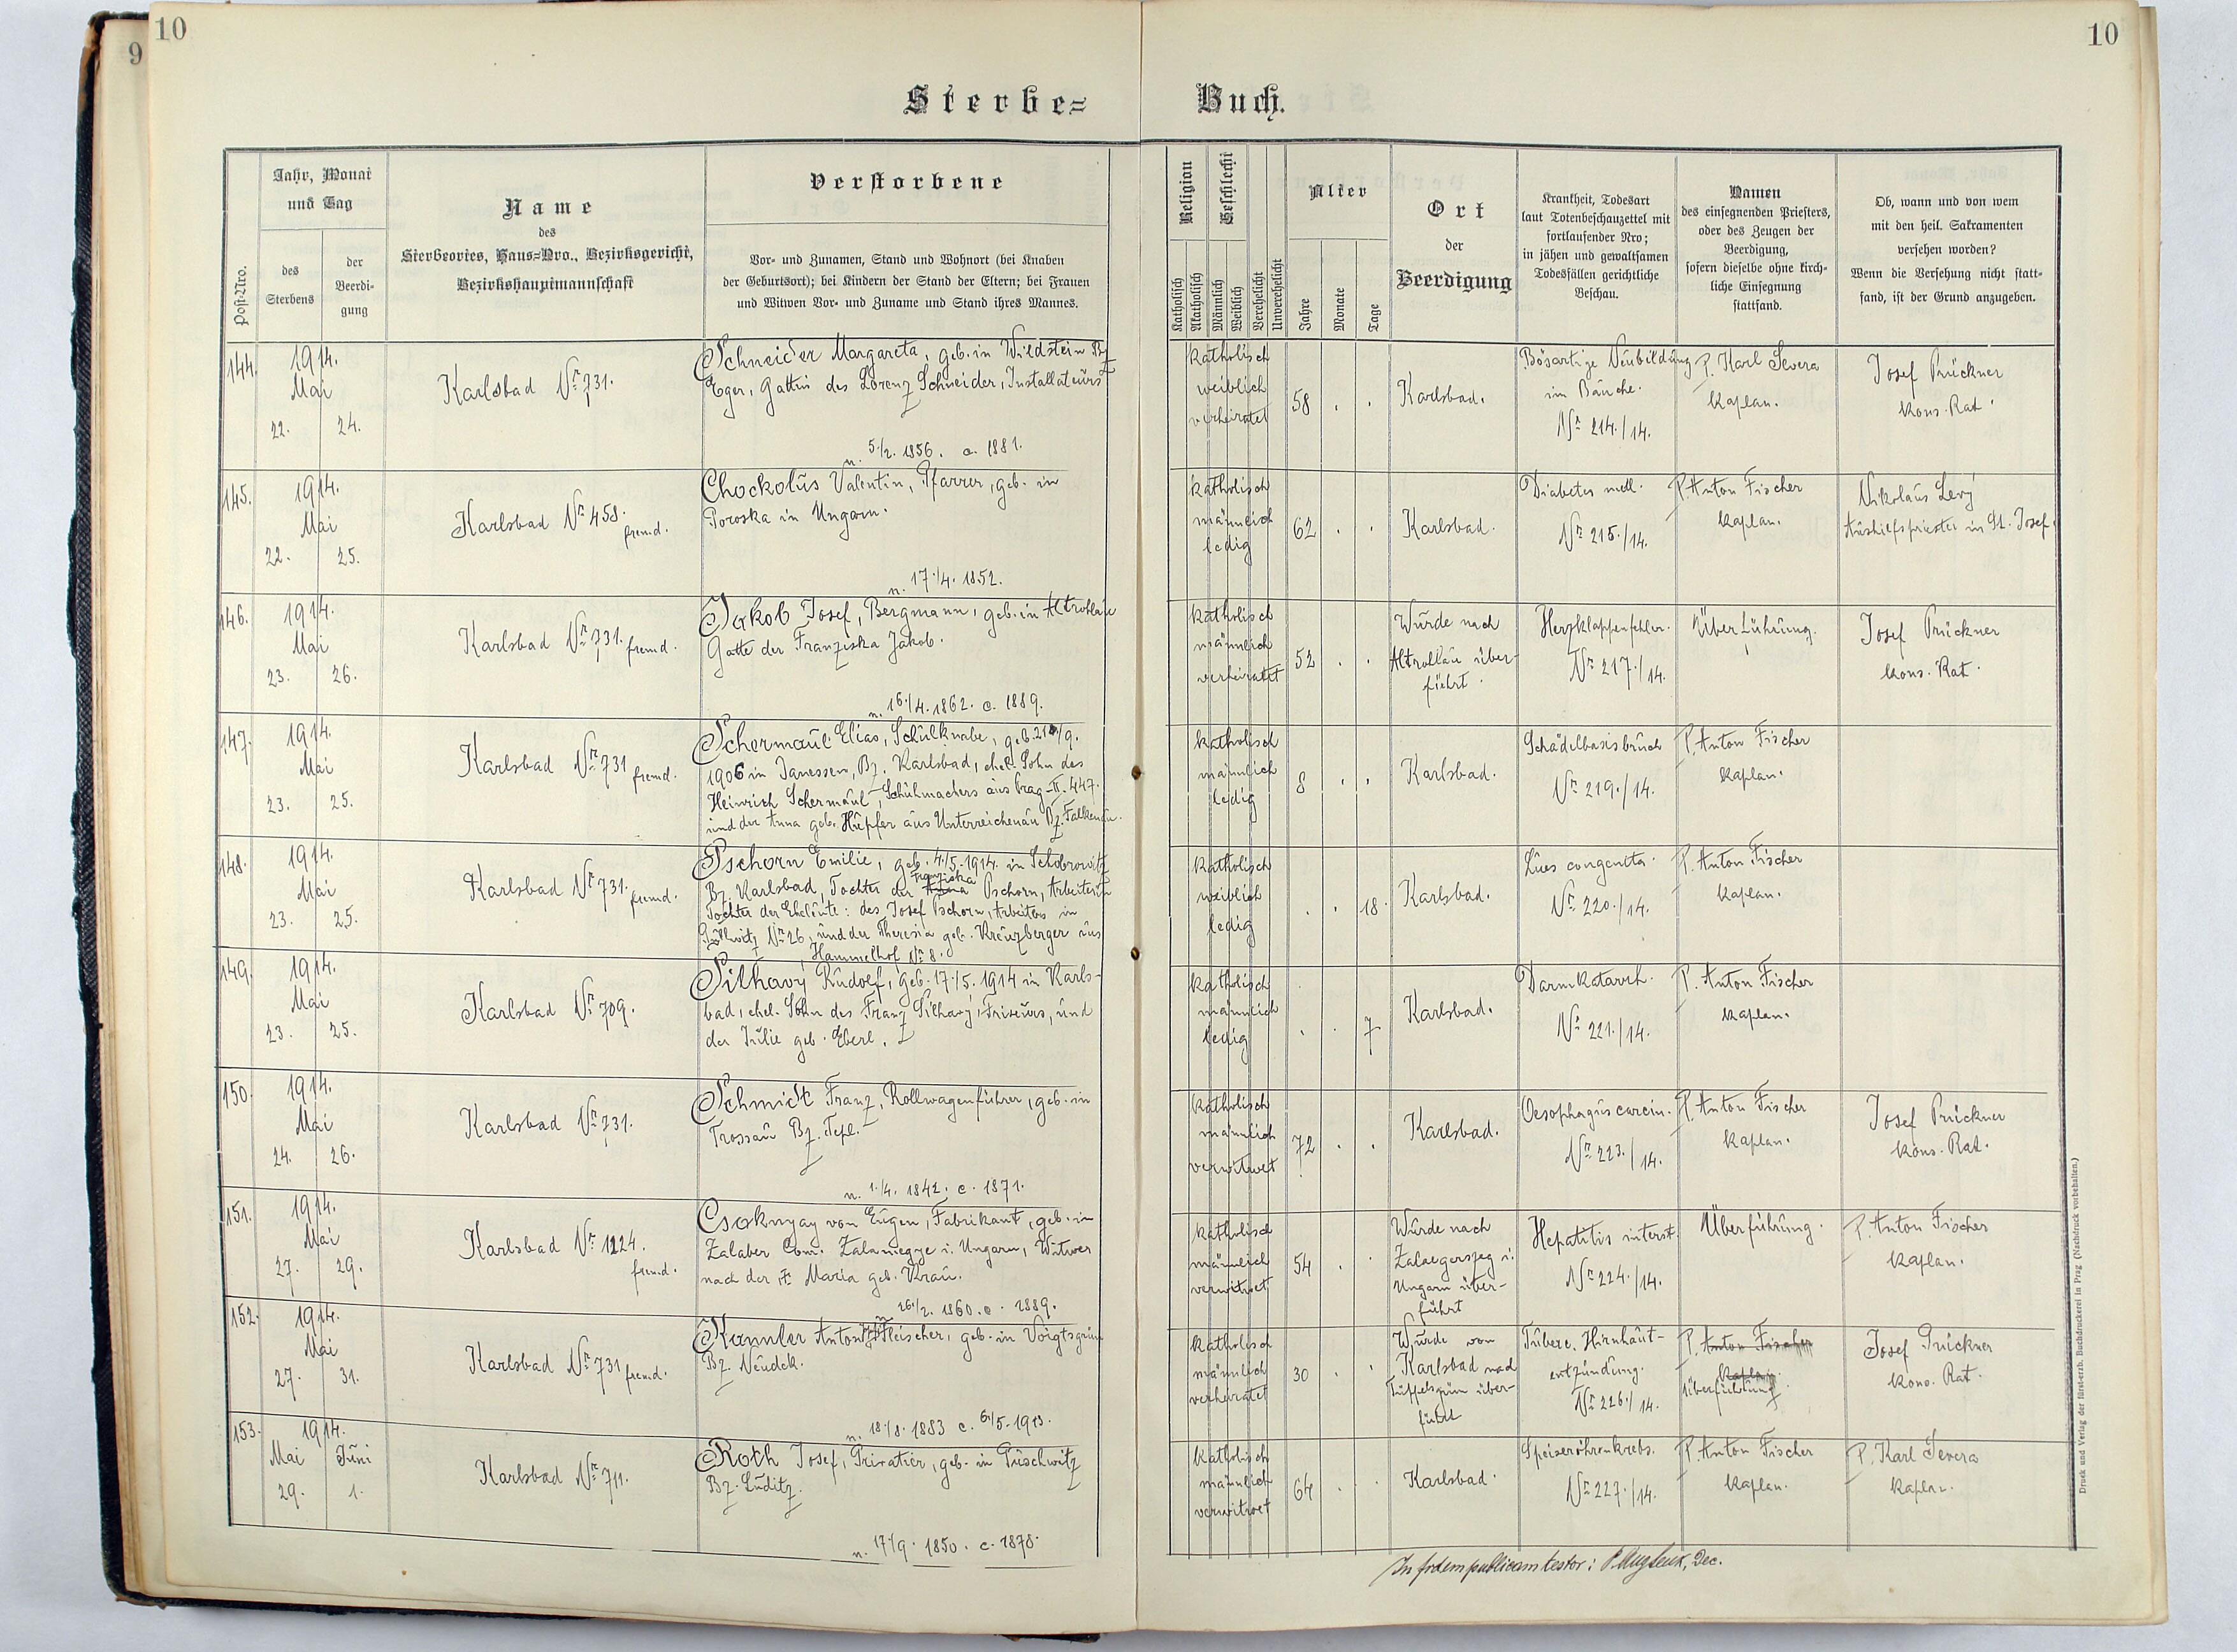 9
10
10
Sterbe=
Buch.
Post-Nro.
Jahr, Monat
und Tag
des
Sterbens
der
Beerdi-
gung
Name
des
Sterbeortes, Haus=Nro., Bezirksgericht,
Bezirkshauptmannschaft
Verstorbene
Vor- und Zunamen, Stand und Wohnort (bei Knaben
der Geburtsort); bei Kindern der Stand der Eltern; bei Frauen
und Witwen Vor- und Zuname und Stand ihres Mannes.
Religion
Katholisch
Akatholisch
Geschlecht
Männlich
Weiblich
Verehelicht
Unverehelicht
Alter
Jahre
Monate
Tage
Ort
der
Beerdigung
Krankheit, Todesart
laut Totenbeschauzettel mit
fortlaufender Nro;
in jähen und gewaltsamen
Todesfällen gerichtliche
Beschau.
Namen
des einsegnenden Priesters,
oder des Zeugen der
Beerdigung,
sofern dieselbe ohne kirch-
liche Einsegnung
stattfand.
Ob, wann und von wem
mit den heil. Sakramenten
versehen worden?
Wenn die Versehung nicht statt-
fand, ist der Grund anzugeben.
144.
1914.
Mai
22. 24.
Karlsbad Nr. 731.
Schneider Margareta, geb. in Wildstein Bz.
Eger, Gattin des Lorenz Schneider, Installateurs
n. 5./2. 1856. c. 1881.
katholisch
weiblich
verheiratet
58 . .
Karlsbad.
Bösartige Neubildung
im Bauche.
Nr. 214./14.
P. Karl Severa
Kaplan.
Josef Prückner
kons. Rat.
145.
1914.
Mai
22. 25.
Karlsbad Nr. 458.
fremd.
Chockolus Valentin, Pfarrer, geb. in
Poroska in Ungarn.
n. 17./4. 1852.
katholisch
männlich
ledig
62 . .
Karlsbad.
Diabetes mell.
Nr. 215./14.
P. Anton Fischer
Kaplan.
Nikolaus Levý
Aushilfspriester in St. Josef.
146.
1914.
Mai
23. 26.
Karlsbad Nr. 731. fremd.
Jakob Josef, Bergmann, geb. in Altrohlau
Gatte der Franziska Jakob.
n. 16./4. 1862. c. 1889.
katholisch
männlich
verheiratet
52 . .
Wurde nach
Altrohlau über-
führt.
Herzklappenfehler.
Nr. 217./14.
Überführung.
Josef Prückner
kons. Rat.
147.
1914.
Mai
23. 25.
Karlsbad Nr. 731 fremd.
Schermaul Elias, Schulknabe, geb. 21./9.
1906 in Janessen, Bz. Karlsbad, ehel. Sohn des
Heinrich Schermaul, Schuhmachers aus Prag-II. 447.
und der Anna geb. Hüpfer aus Unterreichenau Bz. Falkenau.
katholisch
männlich
ledig
8 . .
Karlsbad.
Schädelbasisbruch
Nr. 219./14.
P. Anton Fischer
Kaplan.
148.
1914.
Mai
23. 25.
Karlsbad Nr. 731. fremd.
Pschorn Emilie, geb. 4./5. 1914. in Schobrowitz
Franziska
Bz. Karlsbad, Tochter der Anna Pschorn, Arbeiterin
Tochter der Eheleute: des Josef Pschorn, Arbeiters in
Nr. 26, und der Theresia geb. Kreuzberger aus
Hammelhof Nr. 8.
katholisch
weiblich
ledig
. . 18.
Karlsbad.
Lues congenita.
Nr. 220./14.
P. Anton Fischer
Kaplan.
149.
1914.
Mai
23. 25.
Karlsbad Nr. 709.
Silhavý Rudolf, geb. 17./5. 1914 in Karls-
bad, ehel. Sohn des Franz Silhavý, Friseurs, und
der Julie geb. Eberl.
katholisch
männlich
ledig
. . 7
Karlsbad.
Darmkatarrh.
Nr. 221./14.
P. Anton Fischer
Kaplan.
150.
1914.
Mai
24. 26.
Karlsbad Nr. 731.
Schmidt Franz, Rollwagenführer, geb. in
Trossau Bz. Tepl.
n. 1./4. 1842. c. 1871.
katholisch
männlich
verwitwet
72 . .
Karlsbad.
Oesophaguscarcin.
Nr. 223./14.
P. Anton Fischer
Kaplan.
Josef Prückner
kons. Rat.
151.
1914.
Mai
27. 29.
Karlsbad Nr. 1224.
fremd.
Csaknyay von Eugen, Fabrikant, geb. in
Zalaber Com. Zalamegye i. Ungarn, Witwer
nach der † Maria geb. Krau.
26./2. 1860. c. 1889.
katholisch
männlich
verwitwet
54 . .
Wurde nach
Zalaegerszeg i.
Ungarn über-
führt
Hepatitis interst.
Nr. 224./14.
Überführung.
P. Anton Fischer
Kaplan.
152.
1914.
Mai
27. 31.
Karlsbad Nr. 731 fremd.
Kannler Anton, Fleischer, geb. in Voigtsgrün
Bz. Neudek.
n. 18./8. 1883 c. 6./5. 1913.
katholisch
männlich
verheiratet
30 . .
Wurde von
Karlsbad nach
Tüppelsgrün über-
führt
Tuberc. Hirnhaut-
entzündung.
Nr. 226./14.
P. Anton Fischer
Kaplan.
Überführung.
Josef Prückner
kons. Rat.
153.
1914.
Mai Juni
29. 1.
Karlsbad Nr. 711.
Roth Josef, Privatier, geb. in Puschwitz
Bz. Luditz.
n. 17./9. 1850. c. 1878.
katholisch
männlich
verwitwet
64 . .
Karlsbad.
Speiseröhrenkrebs.
Nr. 227./14.
P. Anton Fischer
Kaplan.
P. Karl Severa
Kaplan.
In fidem publicam testor: P. Aug. Dec.
Druck und Verlag der fürst-erzb. Buchdruckerei in Prag (Nachdruck vorbehalten.)